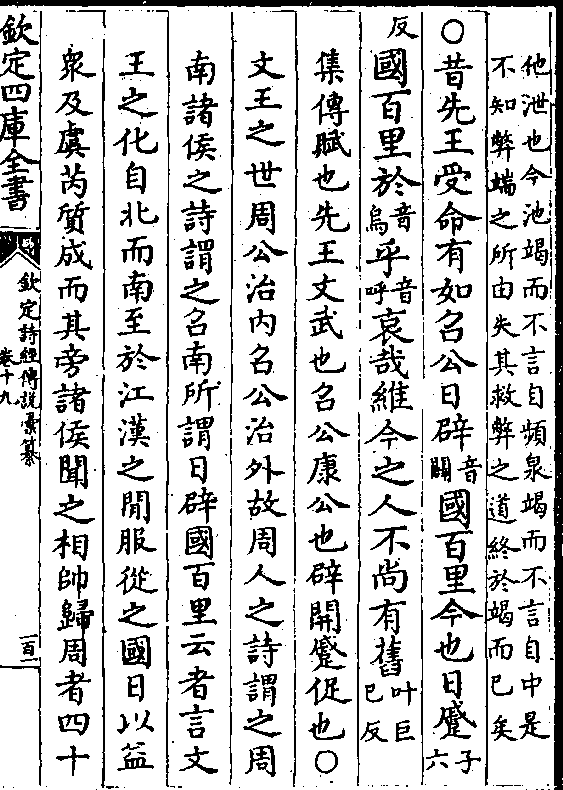 他泄也今池竭而不言自頻泉竭而不言自中是
不知弊端之所由失其救弊之道終於竭而已矣
○昔先王受命有如召公日辟音闢國百里今也日蹙子六
反國百里於音烏乎音呼哀哉維今之人不尚有舊叶巨已反
集傳賦也先王文武也召公康公也辟開蹙促也○
文王之世周公治内召公治外故周人之詩謂之周
南諸侯之詩謂之召南所謂日辟國百里云者言文
王之化自北而南至於江漢之間服從之國日以益
衆及虞芮質成而其旁諸侯聞之相帥歸周者四十
欽定四庫全書
欽定詩經傳說彙纂
卷十九
百一